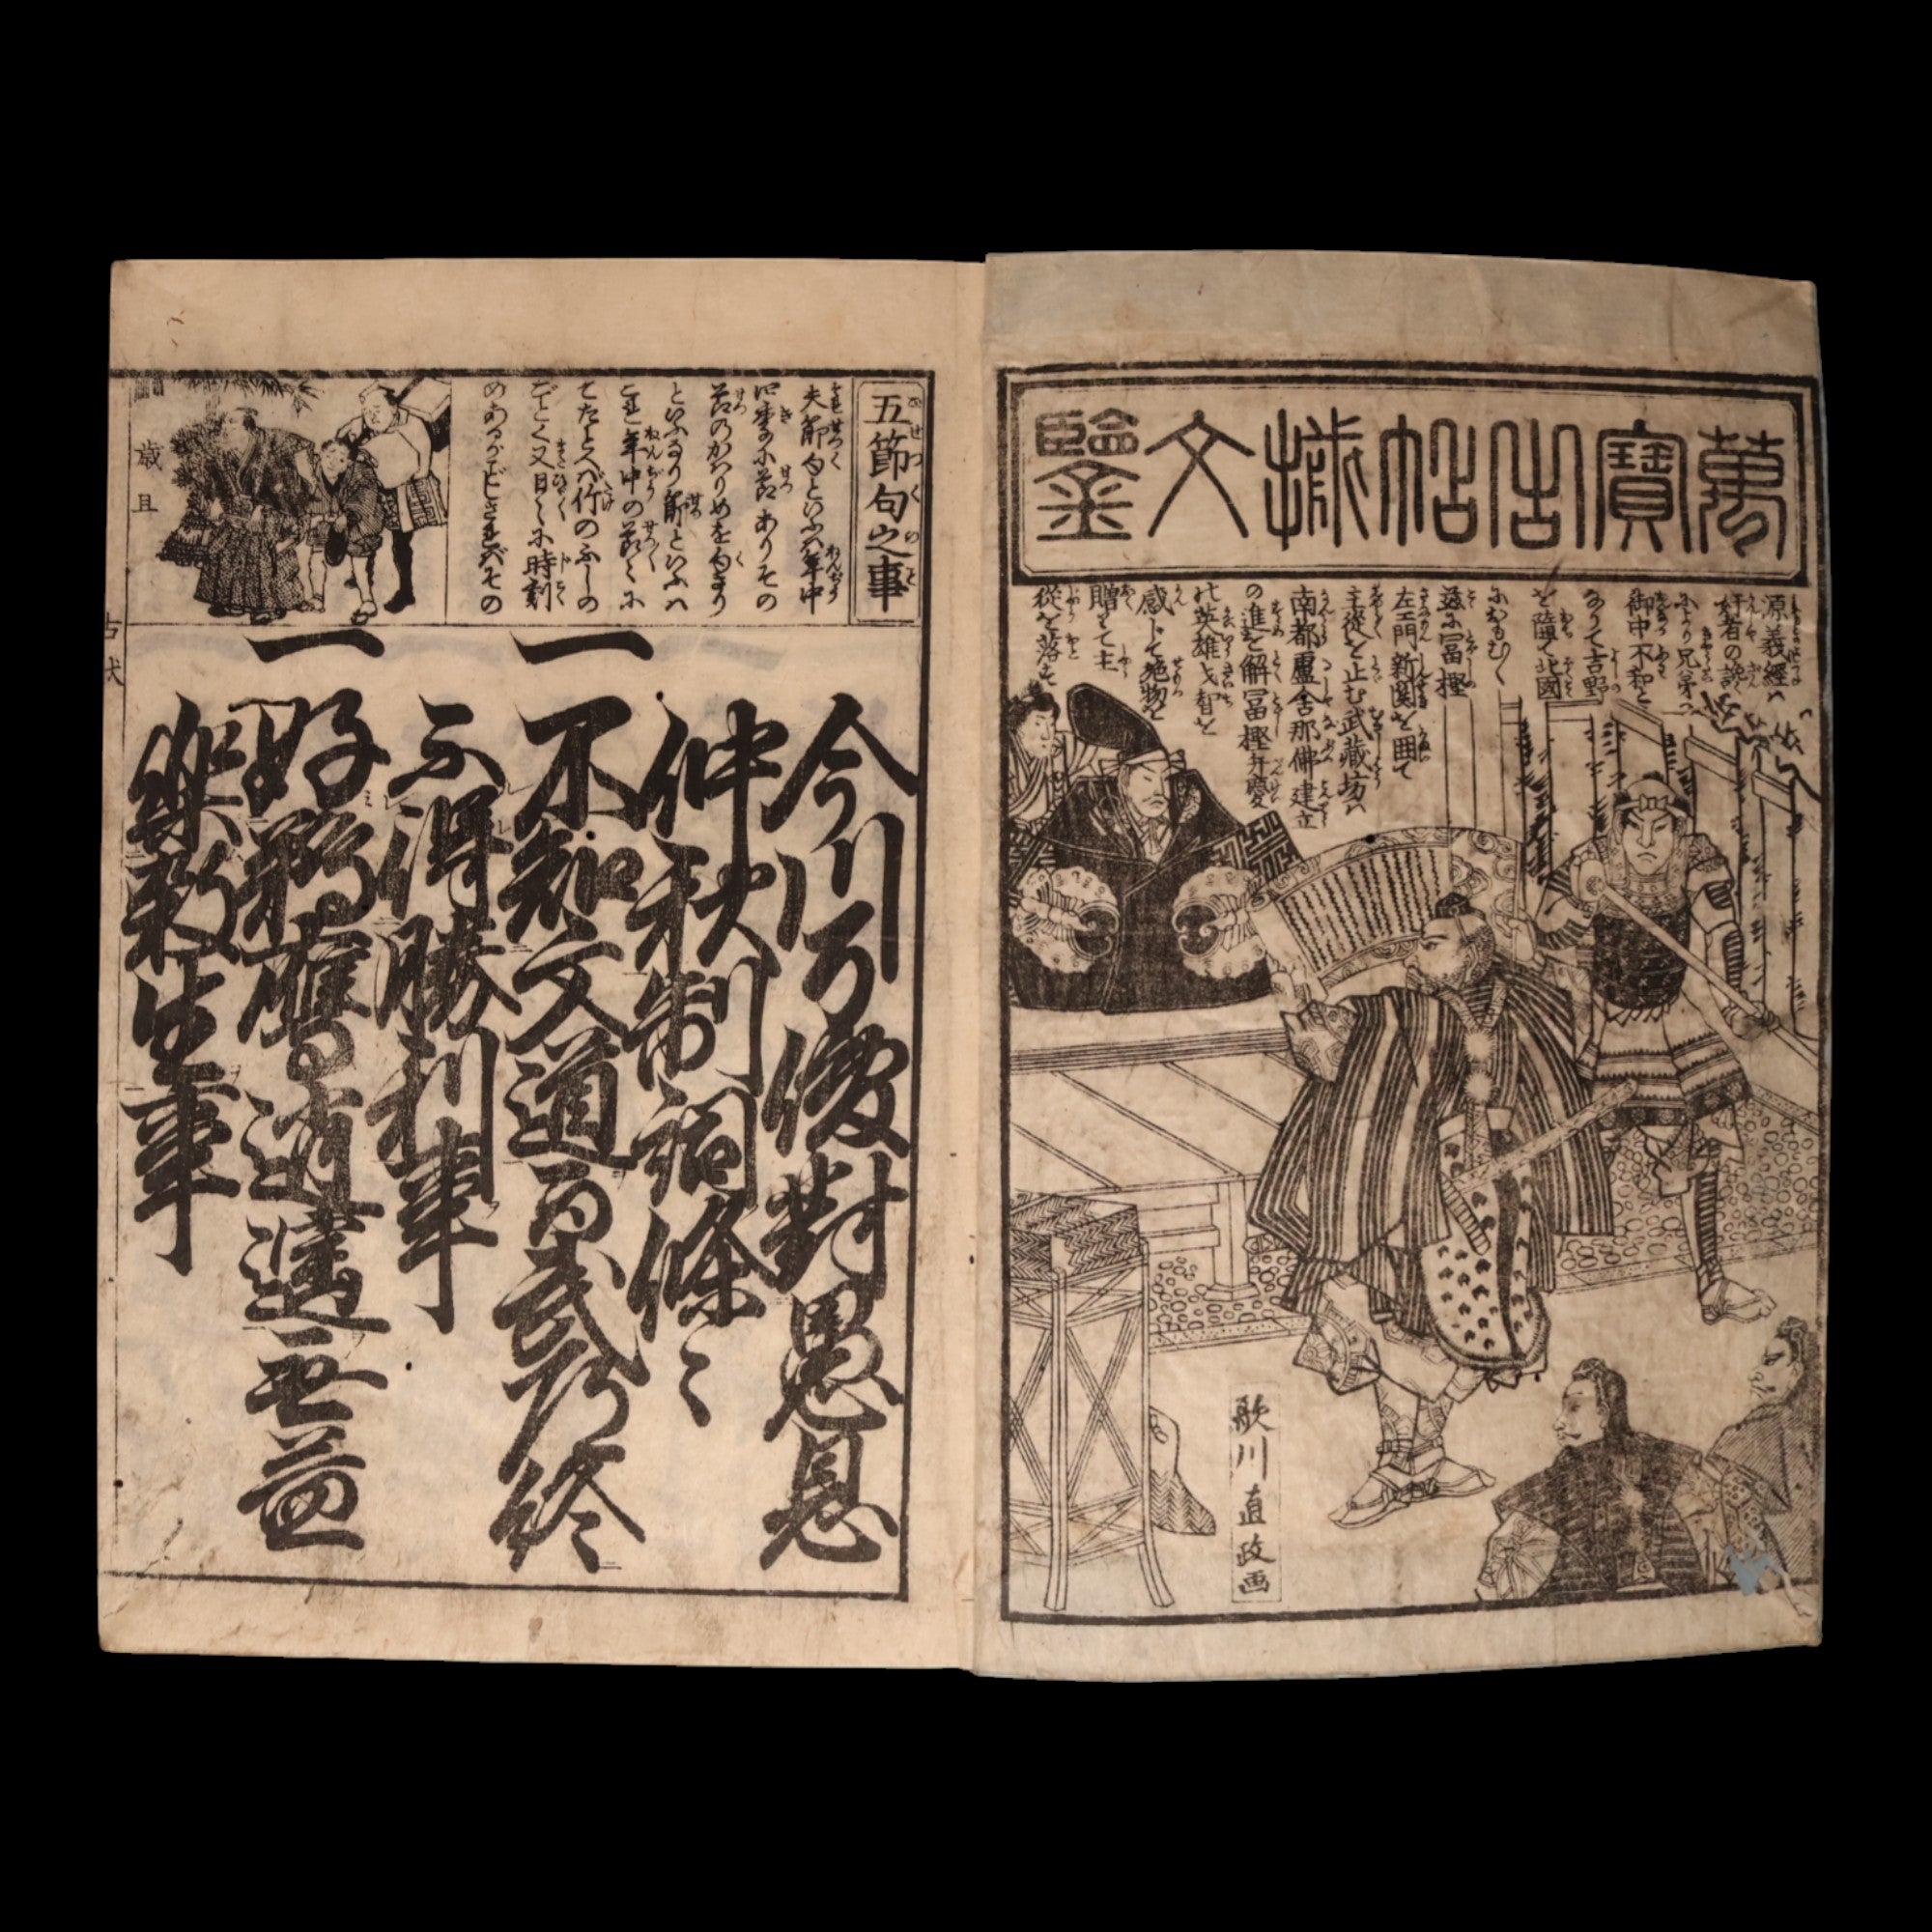 萬寶古状文鑒
源義經ハ
奸者の讒
により兄弟の
御中不和と
なりて吉野
を落て北國
におもむく
茲に冨樫
左エ門新関を囲て
主従を止む武蔵坊ハ
南都盧舎那佛建立
の進を解冨樫弁慶
の英雄才智を
感じて施物を
贈りて主
従を落す
歌川直政画
五節句之事
夫節句といふハ年中
四季の小節ありその
節のかハりめを句きり
といふなり節といふハ
これ年中の節々に
てたとへバ竹のふしの
ごとく又日々に時刻
のあるがごしされバその
歳旦
古状
今川了俊對愚息
仲秋制詞條々
一不知文道而武道終
不得勝利事
一好鵜鷹逍遥無益
樂殺生事